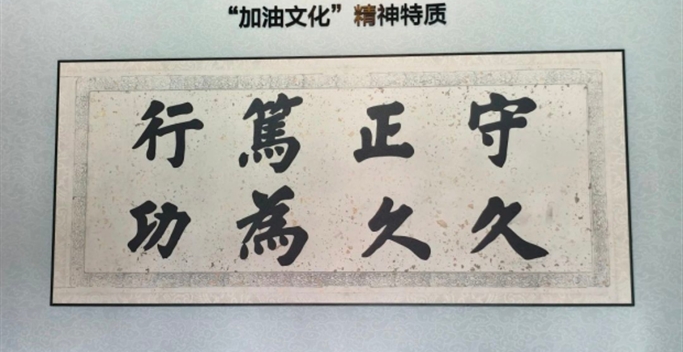 “加油文化”精神特质
守正篤行
久久為功